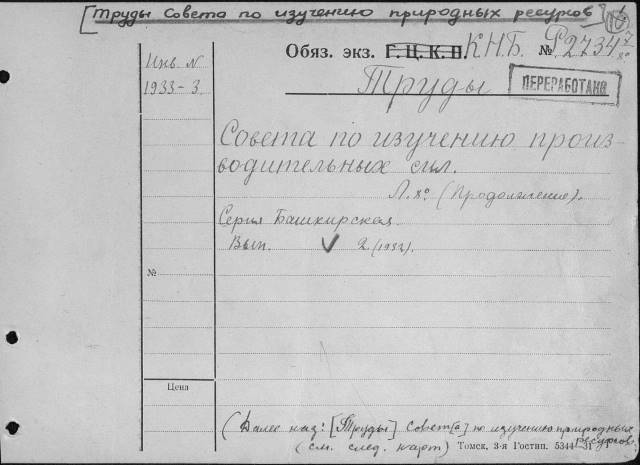 [Труды Совета по изучению природных ресурсов]
Инв. N
1933-3.
Обяз. экз. Г. Ц. К. П. К.Н.Б. № P2734 7/8°
Труды
ПЕРЕРАБОТАНО
Совета по изучению произ-
водительных сил.
Л. 8° (Продолжение).
Серия Башкирская.
Вып. V 2 (1932).
№
Цена
(Далее наз: [Труды] Совет[а] по изучению природных
ресурсов.
(см. след. карт) Томск, 3-я Гостип. 5344—31